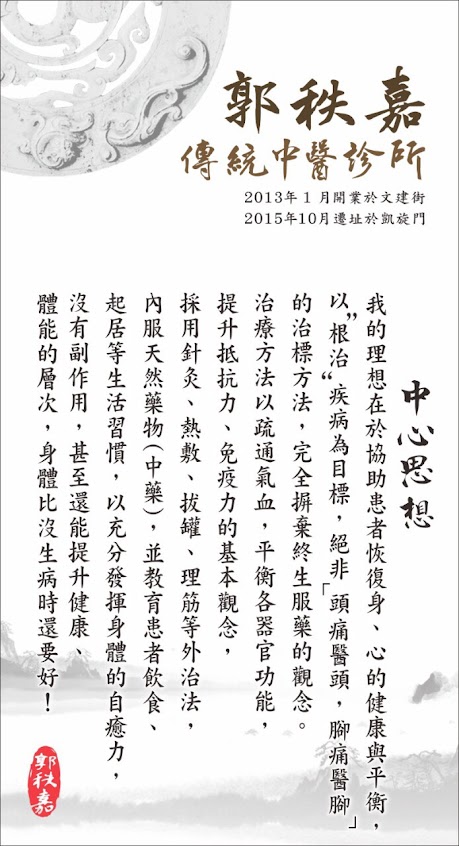 郭秩嘉
傳統中醫診所
2013年1月開業於文建街
2015年10月遷址於凱旋門
中心思想
我的理想在於協助患者恢復身、心的健康與平衡，
以"根治"疾病為目標，絕非「頭痛醫頭，腳痛醫腳」
的治標方法，完全摒棄終生服藥的觀念。
治療方法以疏通氣血，平衡各器官功能，
提升抵抗力、免疫力的基本觀念，
採用針灸、熱敷、拔罐、理筋等外治法，
內服天然藥物(中藥)，並教育患者飲食、
起居等生活習慣，以充分發揮身體的自癒力，
沒有副作用，甚至還能提升健康、
體能的層次，身體比沒生病時還要好！
郭秩嘉